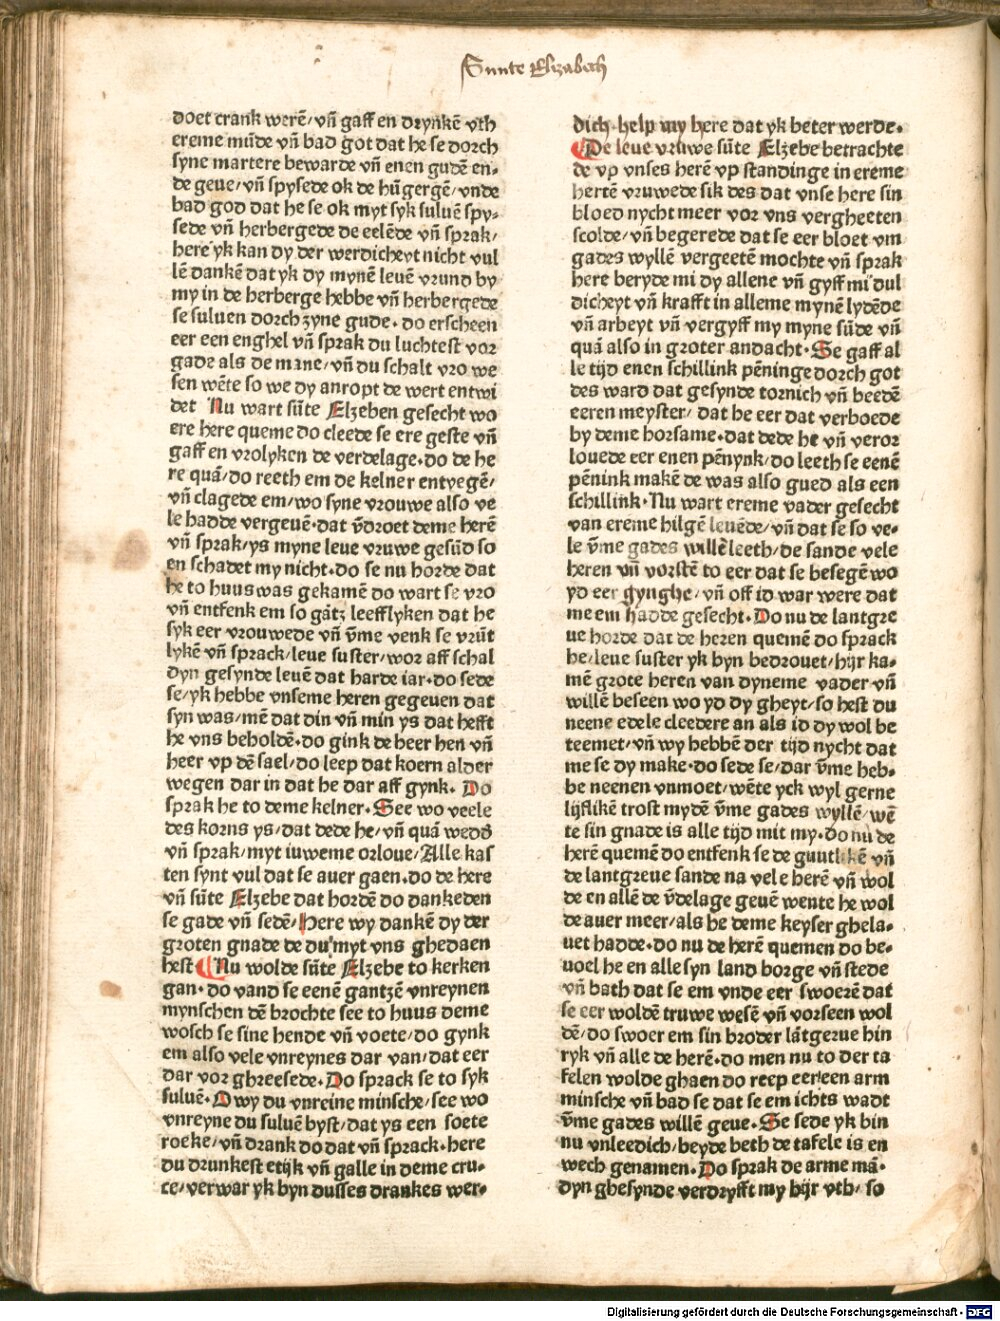 Sunte Elizabeth
doet crank werē/ vn̄ gaff en drynkē vth
ereme mūde vn̄ bad got dat he se dorch
syne martere bewarde vn̄ enen gudē en-
de geue/ vn̄ spysede ok de hūgergē/ vnde
bad god dat he se ok myt syk suluē spy-
sede vn̄ herbergede de eelēde vn̄ sprak/
here yk kan dy der werdicheyt nicht vul
lē dankē dat yk dy mynē leuē vrund by
my in de herberge hebbe vn̄ herbergede
se suluen dorch zyne gude. do erscheen
eer een enghel vn̄ sprak du luchtest vor
gade als de mane/ vn̄ du schalt vro we
sen wēte so we dy anropt de wert entwi
det Nu wart sūte Elzeben gesecht wo
ere here queme do cleede se ere geste vn̄
gaff en vrolyken de verdelage. do de he
re quā/ do reeth em de kelner entyegē/
vn̄ clagede em/ wo syne vrouwe also ve
le hadde vergeuē. dat v̄droet deme herē
vn̄ sprak/ ys myne leue vruwe gesūd so
en schadet my nicht. do se nu horde dat
he to huus was gekamē do wart se vro
vn̄ entfenk em so gātz leefflyken dat he
syk eer vrouwede vn̄ v̄me venk se vrūt
lykē vn̄ sprack/ leue suster/ wor aff schal
dyn gesynde leuē dat harde iar. do sede
se/ yk hebbe vnseme heren gegeuen dat
syn was/ mē dat din vn̄ min ys dat hefft
he vns beholdē. do gink de heer hen vn̄
heer vp dē sael/ do leep dat koern alder
wegen dar in dat he dar aff gynk. Do
sprak he to deme kelner. See wo veele
des korns ys/ dat dede he/ vn̄ quā wedd̄
vn̄ sprak/ myt iuweme orloue/ Alle kas
ten synt vul dat se auer gaen. do de here
vn̄ sūte Elzebe dat hordē do dankeden
se gade vn̄ sedē/ Here wy dankē dy der
groten gnade de du myt vns ghedaen
hest Nu wolde sūte Elzebe to kerken
gan. do vand se eenē gantzē vnreynen
mynschen dē brochte see to huus deme
wosch se sine hende vn̄ voete/ do gynk
em also vele vnreynes dar van/ dat eer
dar vor ghreesede. Do sprack se to syk
suluē. Owy du vnreine minsche/ see wo
vnreyne du suluē byst/ dat ys een soete
roeke/ vn̄ drank do dat vn̄ sprack. here
du drunkest etijk vn̄ galle in deme cru-
ce/ verwar yk byn dusses drankes wer-
dich. help my here dat yk beter werde.
De leue vruwe sūte Elzebe betrachte
de vp vnses herē vp standinge in ereme
hertē vruwede sik des dat vnse here sin
bloed nycht meer vor vns vergheeten
scolde/ vn̄ begerede dat se eer bloet vm
gades wyllē vergeetē mochte vn̄ sprak
here beryde mi dy allene vn̄ gyff mi dul
dicheyt vn̄ krafft in alleme mynē lydēde
vn̄ arbeyt vn̄ vergyff my myne sūde vn̄
quā also in groter andacht. Se gaff al
le tijd enen schillink pēninge dorch got
des ward dat gesynde tornich vn̄ beedē
eeren meyster/ dat he eer dat verboede
by deme horsame. dat dede he vn̄ veror
louede eer enen pēnynk/ do leeth se eenē
pēnink makē de was also gued als een
schillink. Nu wart ereme vader gesecht
van ereme hilgē leuēde/ vn̄ dat se so ve-
le v̄me gades willē leeth/ de sande vele
heren vn̄ vorstē to eer dat se besegē wo
yd eer gynghe/ vn̄ off id war were dat
me em hadde gesecht. Do nu de lantgre
ue horde dat de heren quemē do sprack
he/ leue suster yk byn bedrouet/ hijr ka-
mē grote heren van dyneme vader vn̄
willē beseen wo yd dy gheyt/ so hest du
neene edele cleedere an als id dy wol be
teemet/ vn̄ wy hebbē der tijd nycht dat
me se dy make. do sede se/ dar v̄me heb-
be neenen vnmoet/ wēte yck wyl gerne
lijflikē trost mydē v̄me gades wyllē/ wē
te sin gnade is alle tijd mit my. do nu de
herē quemē do entfenk se de guutlikē vn̄
de lantgreue sande na vele herē vn̄ wol
de en allē de v̄delage geuē wente he wol
de auer meer/ als he deme keyser ghela-
uet hadde. do nu de herē quemen do be-
uoel he en alle syn land borge vn̄ stede
vn̄ bath dat se em vnde eer swoerē dat
se eer woldē truwe wesē vn̄ vorseen wol
dē/ do swoer em sin broder lātgreue hin
ryk vn̄ alle de herē. do men nu to der ta
felen wolde ghaen do reep eer een arm
minsche vn̄ bad se dat se em ichts wadt
v̄me gades willē geue. Se sede yk bin
nu vnleedich/ beyde beth de tafele is en
wech genamen. Do sprak de arme mā.
dyn ghesynde verdryfft my hijr vth/ so
Digitalisierung gefördert durch die Deutsche Forschungsgemeinschaft - DFG